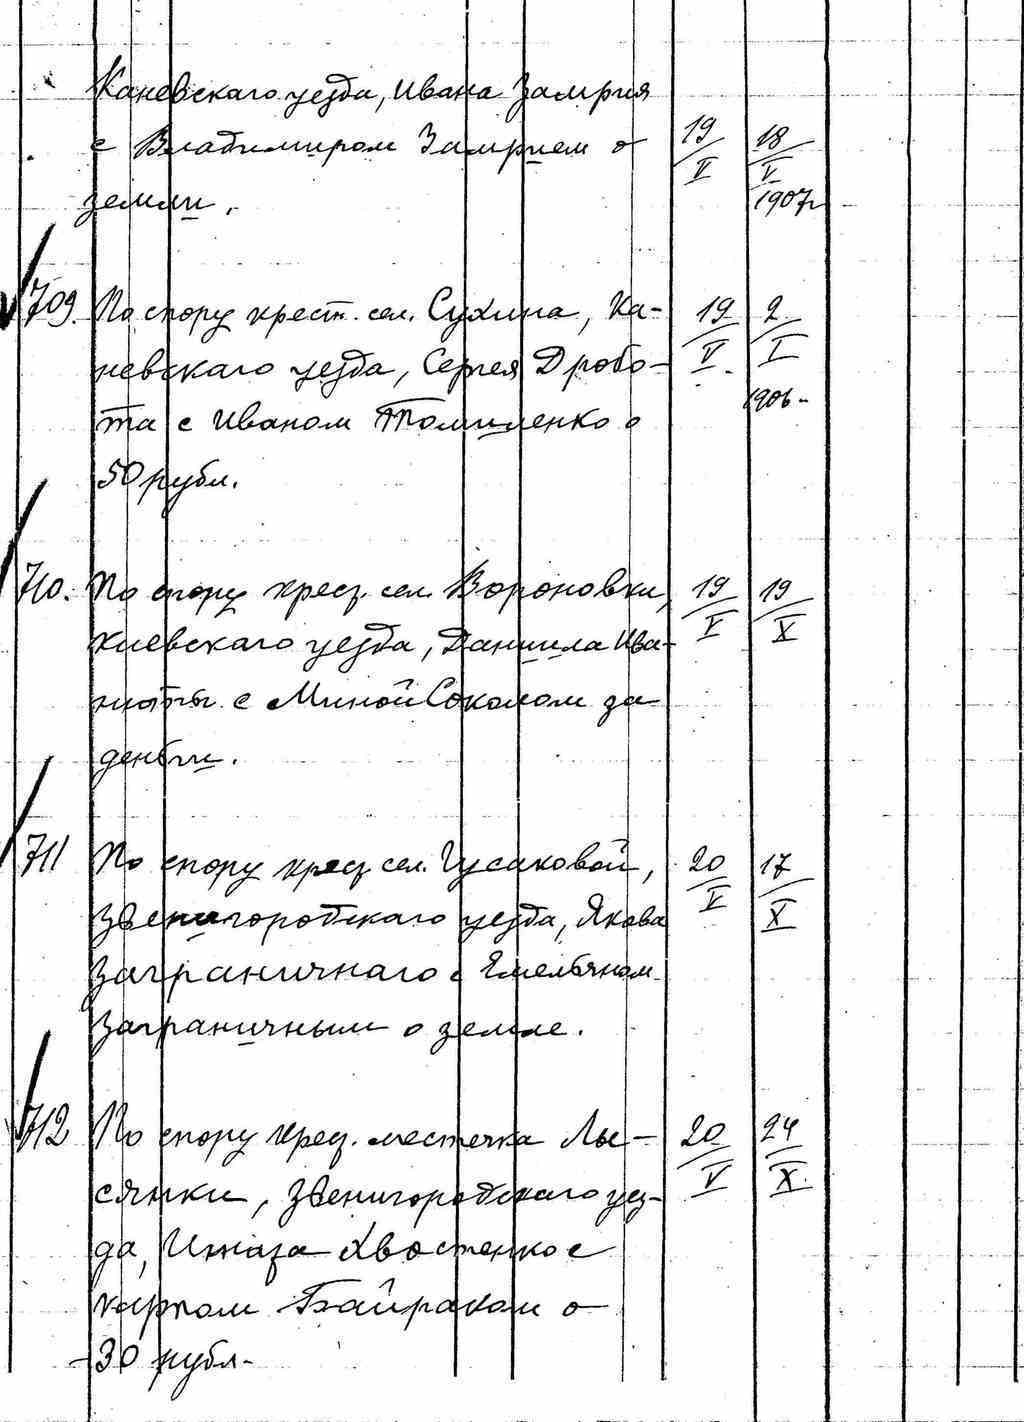 Каневскаго уезда, Ивана Замрия
с Владимиром Замрием о 19/V 18/V
земли. 1907 г
709. По спору крест. сел. Сухина, Ка- 19/V 2/I
невскаго уезда, Сергея Дробо- 1906-
та с Иваном Томиленко о
50 рубл.
710. По спору крест. сел. Вороновки, 19/V 19/X
Киевскаго уезда, Даниила Ива-
с Миной Соколом за
деньги.
711 По спору крест. сел. Гусаковой, 20/V 17/X
Звенигородскаго уезда, Якова
Заграничнаго с Емельяном
Заграничным о земле.
712 По спору крест. местечка Лы- 20/V 24/X
сянки, Звенигородскаго уез-
да, Игната Хвостенко с
Карпом Байраком о
30 рубл-